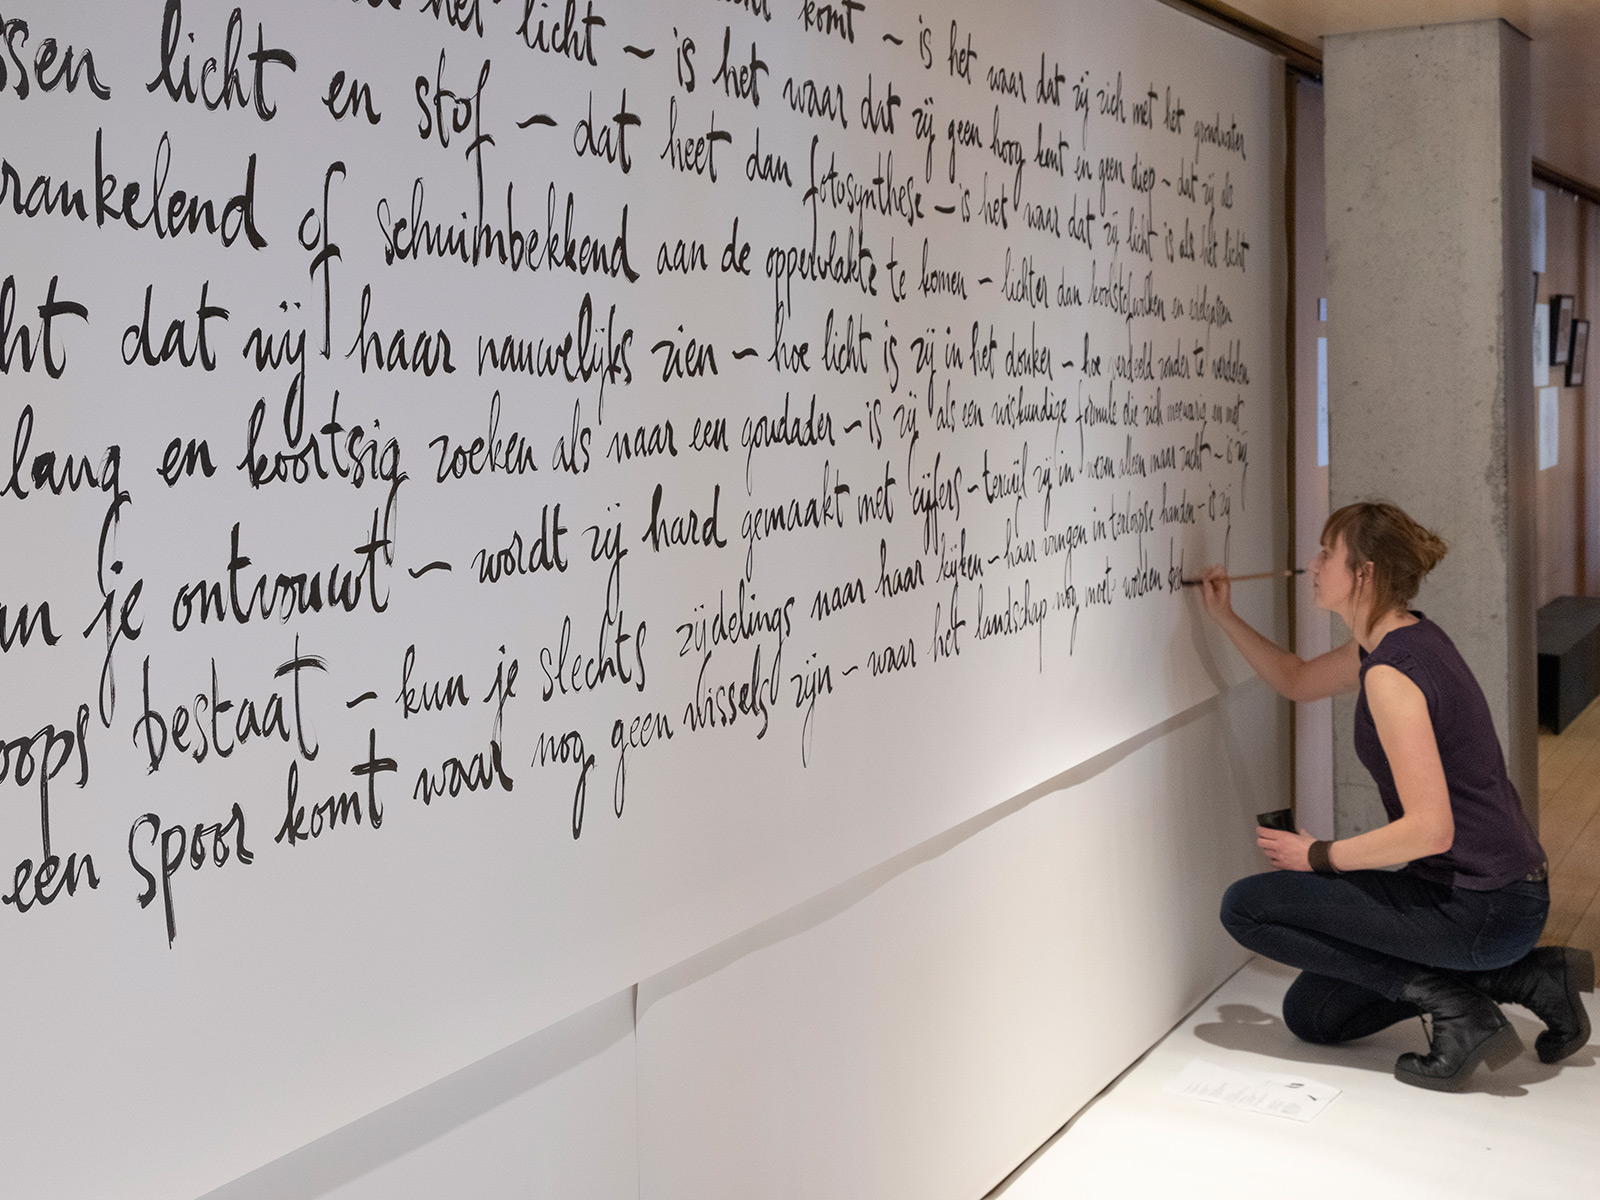 het licht komt ~ is het waar dat zij zich met het grondwater
ssen licht en stof ~ is het waar dat zij geen hoog kent en geen diep ~ dat zij als
rankelend of schuimbekkend ~ dat heet dan fotosynthese ~ is het waar dat zij licht is als het licht
aan de oppervlakte te komen ~ lichter dan koolstofwolken en edelgassen
ht dat wij haar nauwelijks zien ~ hoe licht is zij in het donker ~ hoe verdeeld zonder te verdelen
lang en koortsig zoeken als naar een goudader ~ is zij als een wiskundige formule die zich meewarig en met
an je ontvouwt ~ wordt zij hard gemaakt met cijfers ~ terwijl zij in wezen alleen maar zucht ~ is zij
oops bestaat ~ kun je slechts zijdelings naar haar kijken ~ haar vangen in terloopse handen ~ is zij
een spoor komt waar nog geen wissels zijn ~ waar het landschap nog moet worden ged